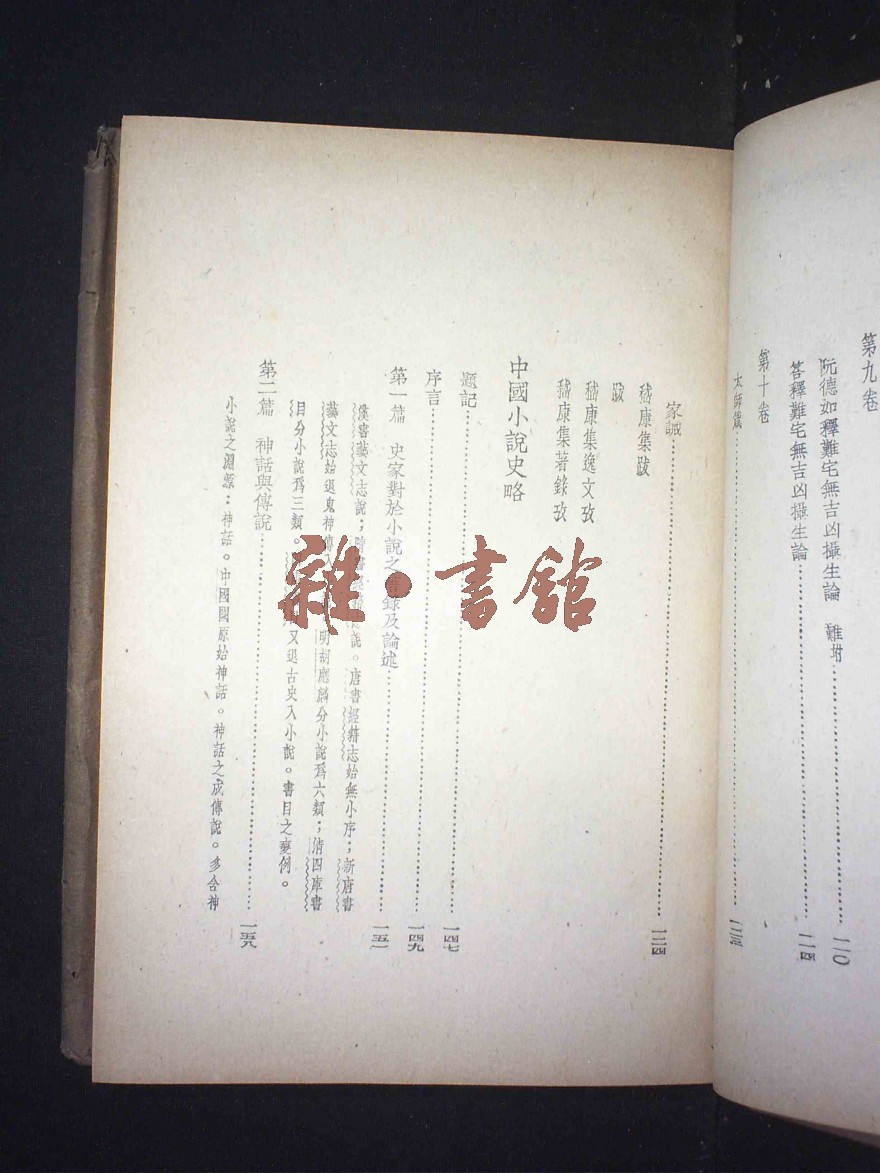 第九卷
阮德如釋難宅無吉凶攝生論 難坿……一一〇
答釋難宅無吉凶攝生論……一一四
第十卷
太師箴……
家誡……一二四
嵇康集跋
跋
嵇康集逸文攷
嵇康集著錄攷
中國小說史略
題記……一四七
序言……一四九
第一篇 史家對於小說之著錄及論述……一五一
漢書藝文志說；隋書說。唐書經籍志始無小序；新唐書
藝文志始退鬼神傳入明胡應麟分小說爲六類；清四庫書
目分小說爲三類。又退古史入小說。書目之變例。
第二篇 神話與傳說……一五九
小說之淵源：神話。中國原始神話。神話之成傳說。多含神
雜·書館